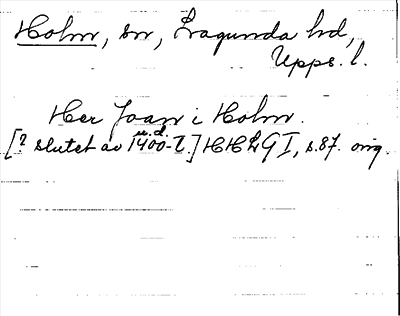 Holm, sn, Lagunda hd,
Upps. l.
Her Joan i Holm.
u.d.
[? slutet av 1400-t.] HH LG I, s. 87. orig.